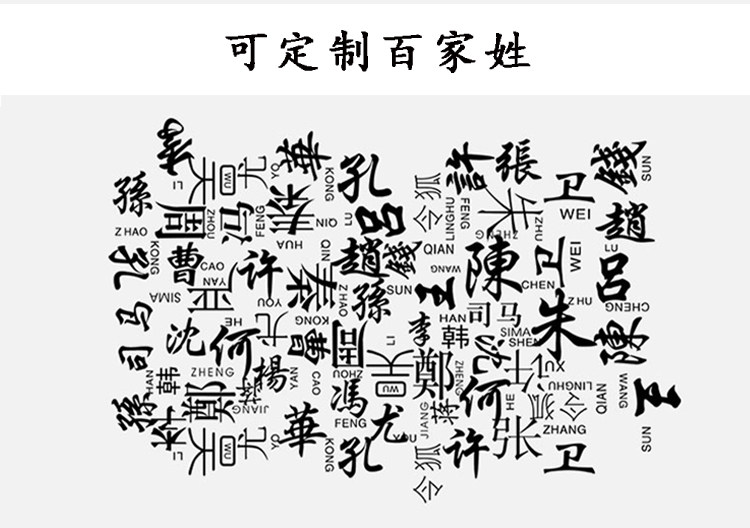 可定制百家姓
華
KONG
孔
許
張
錢
SUN
孫
LI
WU
尤
令狐
LINGHU
FENG
卫
WEI
朱
ZHAO
周
ZHOU
冯
FENG
秦
QIN
HUA
LU
吕
趙
LU
孔
KONG
曹
CAO
YAN
许
YOU
秦
QIN
趙
ZHAO
錢
QIAN
WANG
陳
CHEN
卫
WEI
吕
CHENG
SIMA
司马
孫
SUN
王
HAN
司马
SIMA
朱
ZHU
陳
沈
HE
何
尤
KONG
曹
周
ZHOU
李
韩
沈
SHEN
XU
HAN
韩
ZHENG
鄭
楊
YAN
CAO
LI
WU
鄭
ZHENG
何
HE
LINGHU
QIAN
WANG
王
孫
李
LI
蒋
JIANG
馮
FENG
尤
YOU
蒋
JIANG
令狐
吴
WU
尤
YO
華
KONG
孔
令狐
许
张
ZHANG
卫
SUN